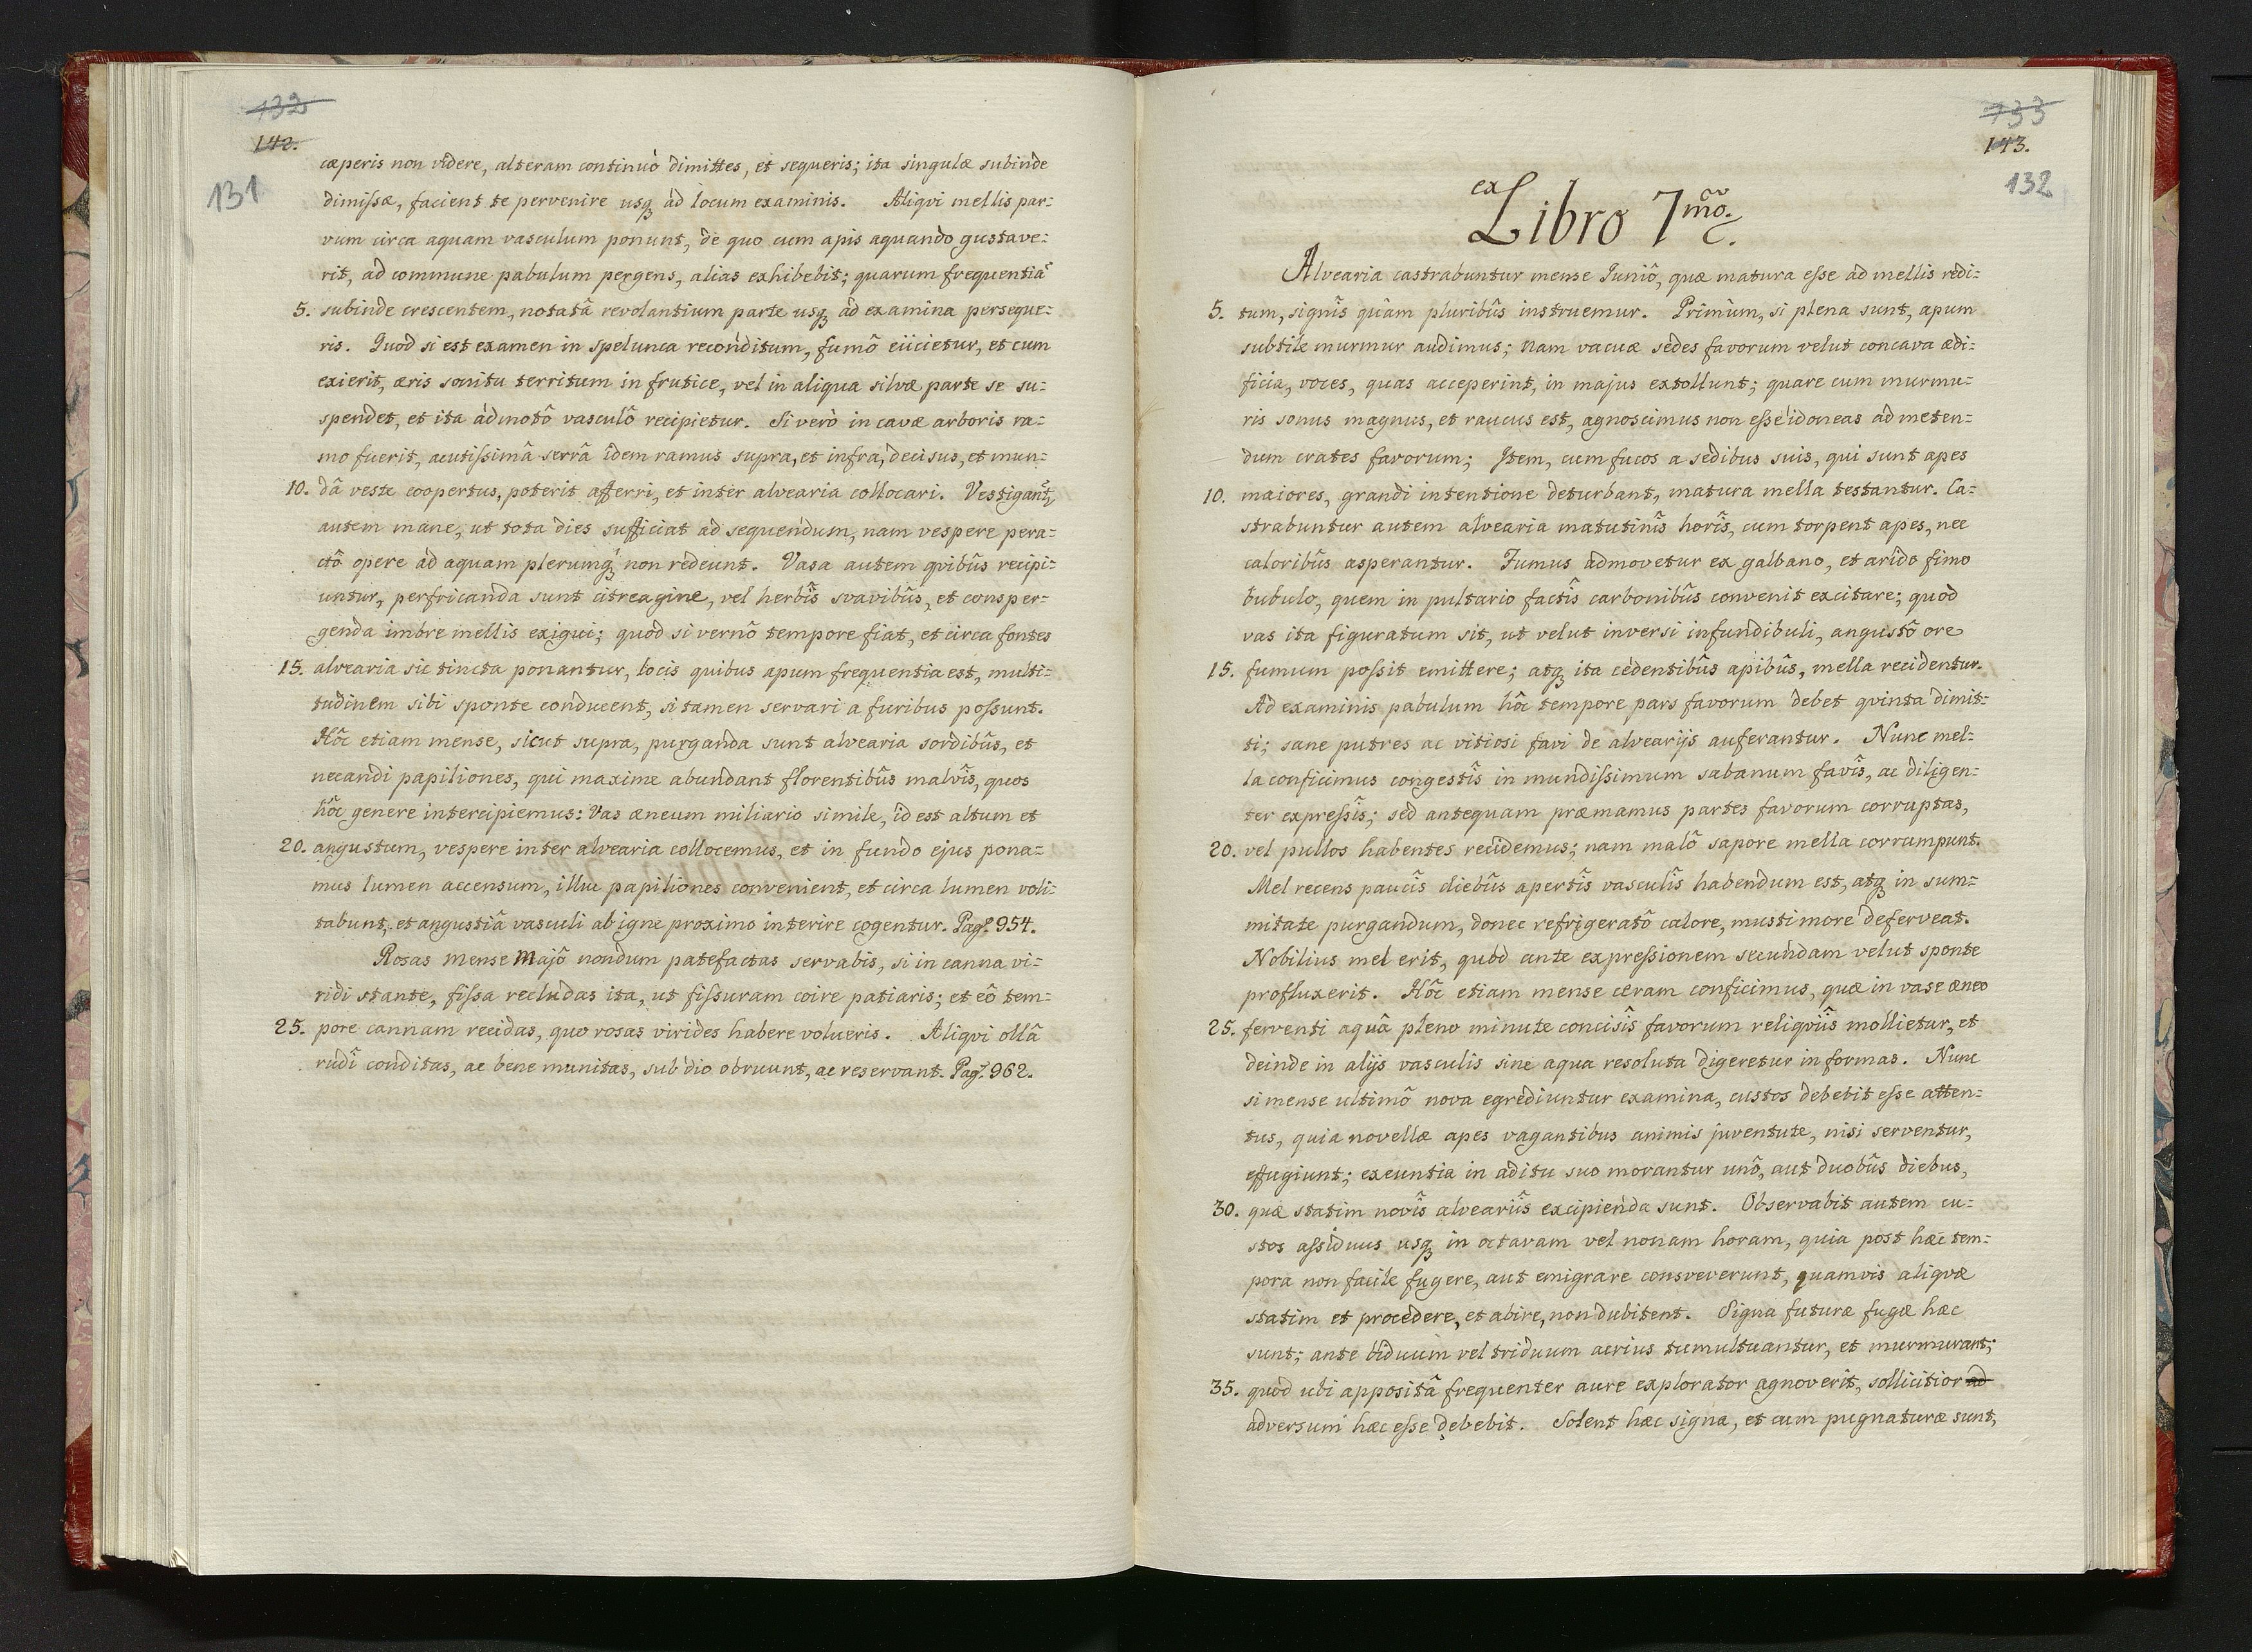 132
142.
131
cæperis non videre, alteram continuò dimittes, et sequeris; ita singulæ subinde
dimissæ, facient te pervenire usq₃ ad locum examinis. Aliqvi mellis par=
vum circa aquam vasculum ponunt, de quo cum apis aquando gustave=
rit, ad commune pabulum pergens, alias exhibebit; quarum frequentiã
5. subinde crescentem, notatâ revolantium parte usq₃ ad examina perseque=
ris. Quod si est examen in spelunca reconditum, fumô eiicietur, et cum
exierit, æris sonitu territum in frutice, vel in aliqua silvæ parte se su=
spendet, et ita admotô vasculô recipietur. Si verò in cavæ arboris ra=
mo fuerit, acutissimâ serrâ idem ramus supra, et infra, decisus, et mun=
10. dâ veste coopertus, poterit afferri, et inter alvearia collocari. Vestigant᷑,
autem mane, ut tota dies sufficiat ad sequendum, nam vespere pera=
ctô opere ad aquam plerumq́₃ non redeunt. Vasa autem qvibûs recipi=
untur, perfricanda sunt citreagine, vel herbîs svavibûs, et consper=
genda imbre mellis exigui; quod si vernô tempore fiat, et circa fontes
15. alvearia sic tincta ponantur, locis quibus apum frequentia est, multi=
tudinem sibi sponte conducent, si tamen servari a furibus possunt.
Hôc etiam mense, sicut supra, purganda sunt alvearia sordibûs, et
necandi papiliones, qui maxime abundant florentibûs malvîs, quos
hôc genere intercipiemus: Vas æneum miliario simile, id est altum et
20. angustum, vespere inter alvearia collocemus, et in fundo ejus pona=
mus lumen accensum, illuc papiliones convenient, et circa lumen voli=
tabunt, et angustiâ vasculi ab igne proximo interire cogentur. Pag. 954.
Rosas mense Majô nondum patefactas servabis, si in canna vi=
ridi stante, fissa recludas ita, ut fissuram coire patiaris; et eô tem=
25. pore cannam recidas, quo rosas virides habere volueris. Aliqvi ollâ
rudî conditas, ac bene munitas, sub dio obruunt, ac reservant. Pag. 962.
133
143.
132
ex
Libro 7mõ.
Alvearia castrabuntur mense Juniô, quæ matura esse ad mellis redi=
5. tum, signîs quàm pluribûs instruemur. Primùm, si plena sunt, apum
subtile murmur audimus; nam vacuæ sedes favorum velut concava ædi=
ficia, voces, quas acceperint, in majus extollunt; quare cum murmu=
ris sonus magnus, et raucus est, agnoscimus non esse idoneas ad meten=
dum crates favorum; Item, cum fucos a sedibus suis, qui sunt apes
10. maiores, grandi intentione deturbant, matura mella testantur. Ca=
strabuntur autem alvearia matutinîs horîs, cum torpent apes, nec
caloribûs asperantur. Fumus admovetur ex galbano, et arido fimo
bubulo, quem in pultario factîs carbonibûs convenit excitare; quod
vas ita figuratum sit, ut velut inversi infundibuli, angustô ore
15. fumum possit emittere; atq₃ ita cedentibûs apibûs, mella recidentur.
Ad examinis pabulum hôc tempore pars favorum debet qvinta dimit=
ti; sane putres ac vitiosi favi de alvearijs auferantur. Nunc mel=
la conficimus congestîs in mundissimum sabanum favîs, ac diligen=
ter expressîs; sed antequam præmamus partes favorum corruptas,
20. vel pullos habentes recidemus; nam malô sapore mella corrumpunt.
Mel recens paucîs diebûs apertîs vasculîs habendum est, atq₃ in sum=
mitate purgandum, donec refrigeratô calore, musti more deferveat.
Nobilius mel erit, quòd ante expressionem secundam velut sponte
profluxerit. Hôc etiam mense ceram conficimus, quæ in vase æneo
25. ferventi aquâ pleno minute concisîs favorum reliqviîs mollietur, et
deinde in alijs vasculis sine aqua resoluta digeretur in formas. Nunc
si mense ultimô nova egrediuntur examina, custos debebit esse atten=
tus, quia novellæ apes vagantibus animis juventute, nisi serventur,
effugiunt; exeuntia in aditu suo morantur unô, aut duobûs diebus,
30. quæ statim novîs alveariîs excipienda sunt. Observabit autem cu=
stos assiduus usq₃ in octavam vel nonam horam, quia post hæc tem=
pora non facile fugere, aut emigrare consveverunt, quamvis aliqvæ
statim et procedere, et abire, non dubitent. Signa futuræ fugæ hæc
sunt; ante biduum vel triduum acrius tumultuantur, et murmurant;
35. quod ubi appositâ frequenter aure explorator agnoverit, sollicitior ad
adversum hæc esse debebit. Solent hæc signa, et cum pugnaturæ sunt,